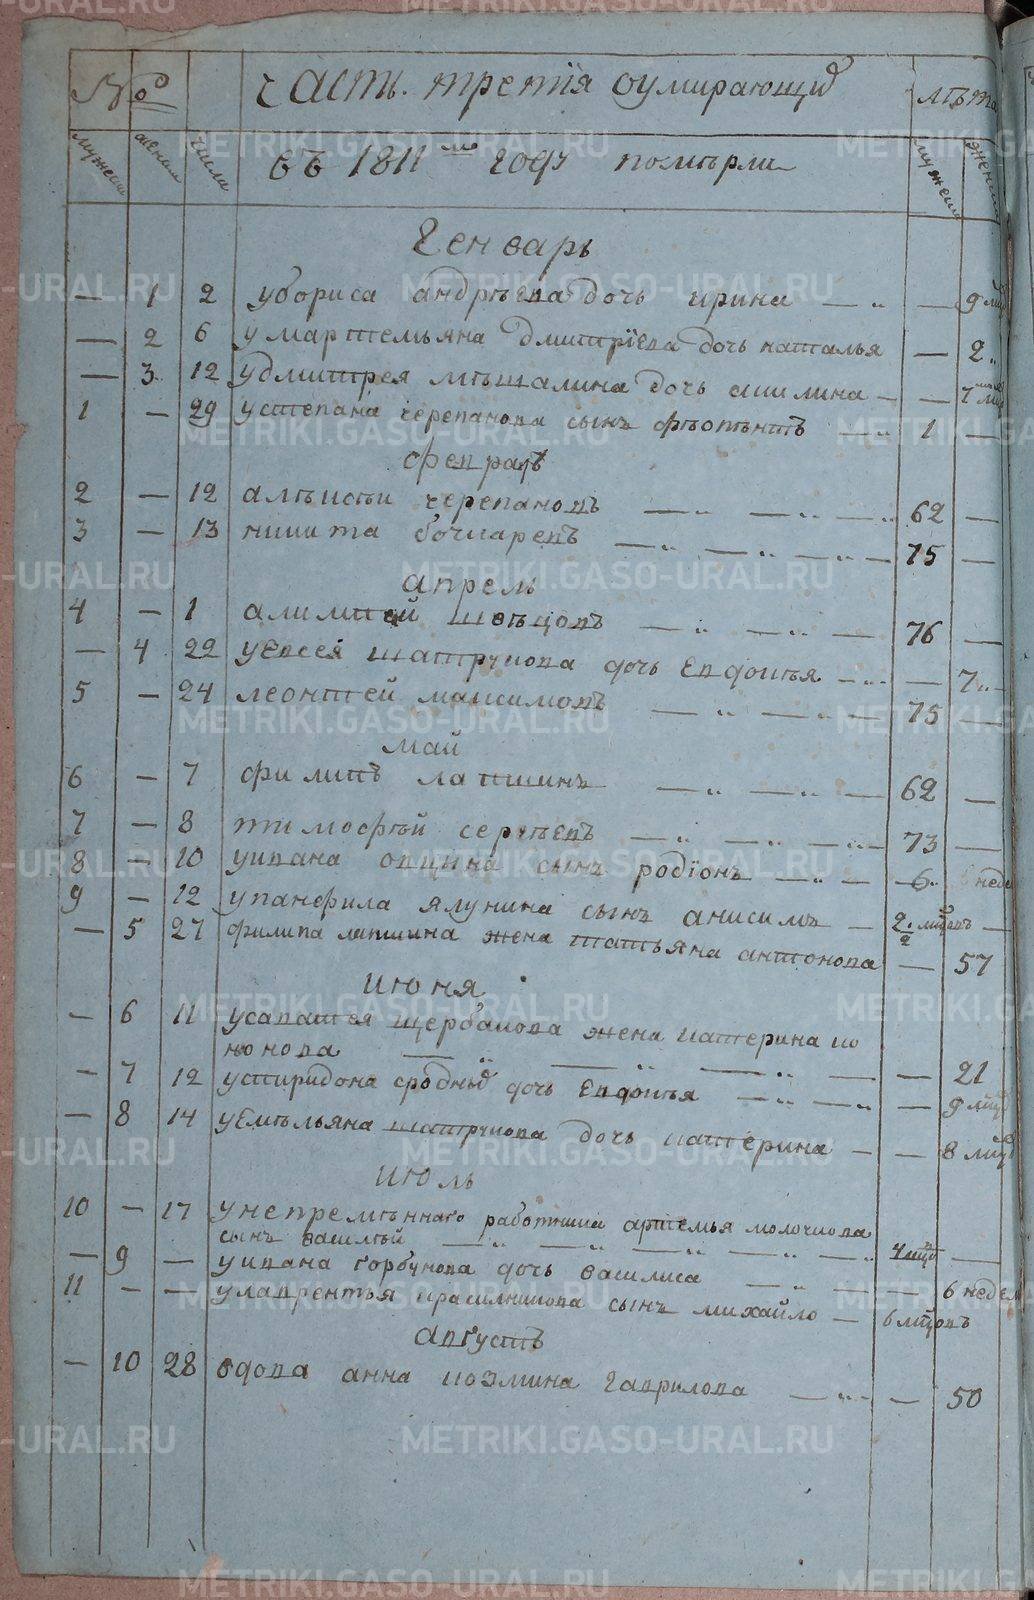 № часть третїя оумирающих лѣта
мужеск женск числа въ 1811 м году померли мужеск женск
Генварь
— 1 2 у бориса андрѣева дочь ирина — — 9 мц
— 2 6 у мартемьяна дмитрїева дочь наталья — 2
— 3 12 у дмитрея мѣшалина дочь акилина — — 7 мц
1 — 29 у степана черепанова сынъ фѣопѣнтъ — 1 —
февраль
2 — 12 алѣксѣи черепановъ — — — 62 —
3 — 13 никита бочкаревъ — — — 75 —
апрель
4 — 1 алимпей швѣцовъ — — — 76 —
— 4 22 у евсея шатрукова дочь евдокѣя — — 7
5 — 24 леонтей максимовъ — — — 75 —
май
6 — 7 филипъ лапшинъ — — — 62 —
7 — 8 тимофѣй сергѣевъ — — — 73 —
8 — 10 у ивана овцина сынъ родїонъ — — 6 недел
9 — 12 у панфила ялунина сынъ анисимъ — 2 1/2 мцовъ —
— 5 27 филипа лапшина жена татьяна антонова — 57
июня
— 6 11 у саватея щербакова жена катерина ко
нонова — — — — — — 21
— 7 12 у спиридона сродных дочь евдокѣя — — — 9 мц
— 8 14 у емѣльяна шатрукова дочь катерина — — 8 мцов
июль
10 — 17 у непремѣннаго работника артемья молочкова
сынъ василѣй — — — — — — 4 мцв —
— 9 — у ивана горбунова дочь василиса — — — 6 недел
11 — — у лаврентья красилникова сынъ михайло — 6 мцовъ
августъ
— 10 28 вдова анна козмина гаврилова — — — 50
METRIKI.GASO-URAL.RU